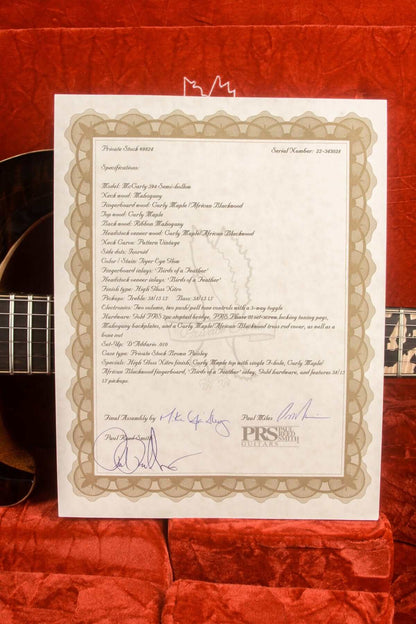 Private Stock #9824 Serial Number: 22-343028
Specifications:
Model: McCarty 594 Semi-hollow
Neck wood: Mahogany
Fingerboard wood: Curly Maple/African Blackwood
Top wood: Curly Maple
Back wood: Ribbon Mahogany
Headstock veneer wood: Curly Maple/African Blackwood
Neck Carve: Pattern Vintage
Side dots:
Color / Stain: Tiger Eye Glow
Fingerboard inlays: 'Birds of a Feather'
Headstock veneer inlays: 'Birds of a Feather'
Finish type: High Gloss Nitro
Pickups: Treble: 58/15 LT Bass: 58/15 LT
Electronics: Two volume, two push/pull tone controls with a 3-way toggle
Hardware: Gold PRS 2pc stoptail bridge, PRS Phase III set-screw locking tuning pegs,
Mahogany backplates, and a Curly Maple/African Blackwood truss rod cover, as well as a
bone nut
Set-Up: D'Addario .010
Case type: Private Stock Brown Paisley
Specials: High Gloss Nitro finish, Curly Maple top with single F-hole, Curly Maple/
African Blackwood fingerboard, 'Birds of a Feather' inlay, Gold hardware, and features 58/15
LT pickups.
Final Assembly by Paul Miles
Paul Reed Smith
PRS PAUL REED SMITH
GUITARS